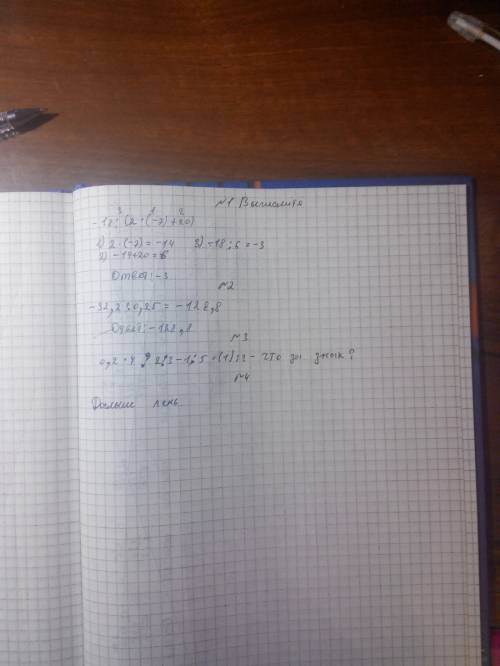 №1 Вычислите
3 1 2
-18 : (2 · (-7) + 20)
1) 2 · (-7) = -14 3) -18 : 6 = -3
2) -14+20 = 6
Ответ: -3
№2
-32,2 : 0,25 = -128,8
Ответ: -128,8
№3
- что за знак?
№4
Дальше лень